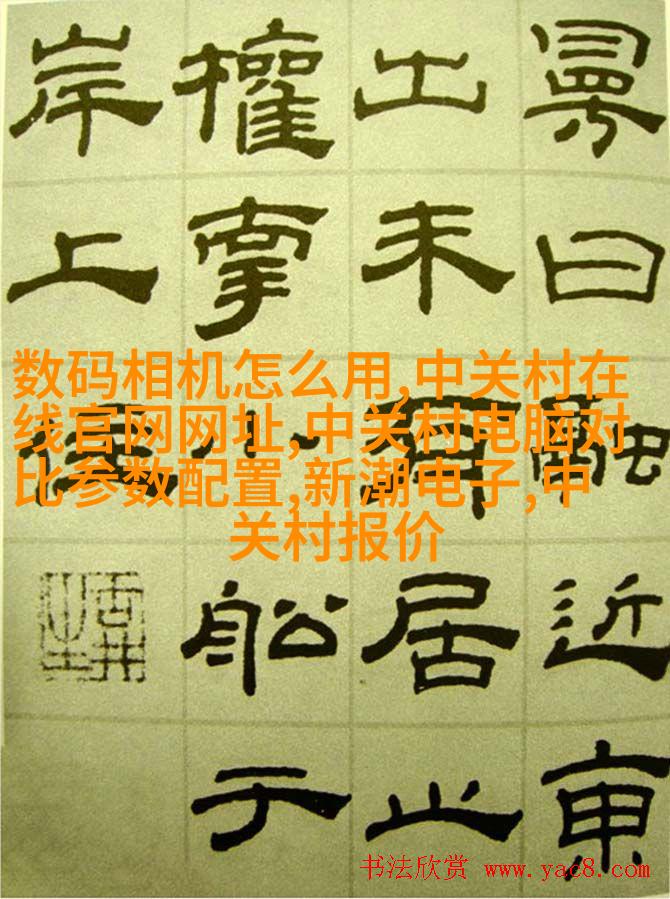 曰融近東
出未居止
權小船于
岸上
数码相机怎么用,中关村在
线官网网址,中关村电脑对
比参数配置,新潮电子,中
关村报价
书法欣赏 www.yac8.com